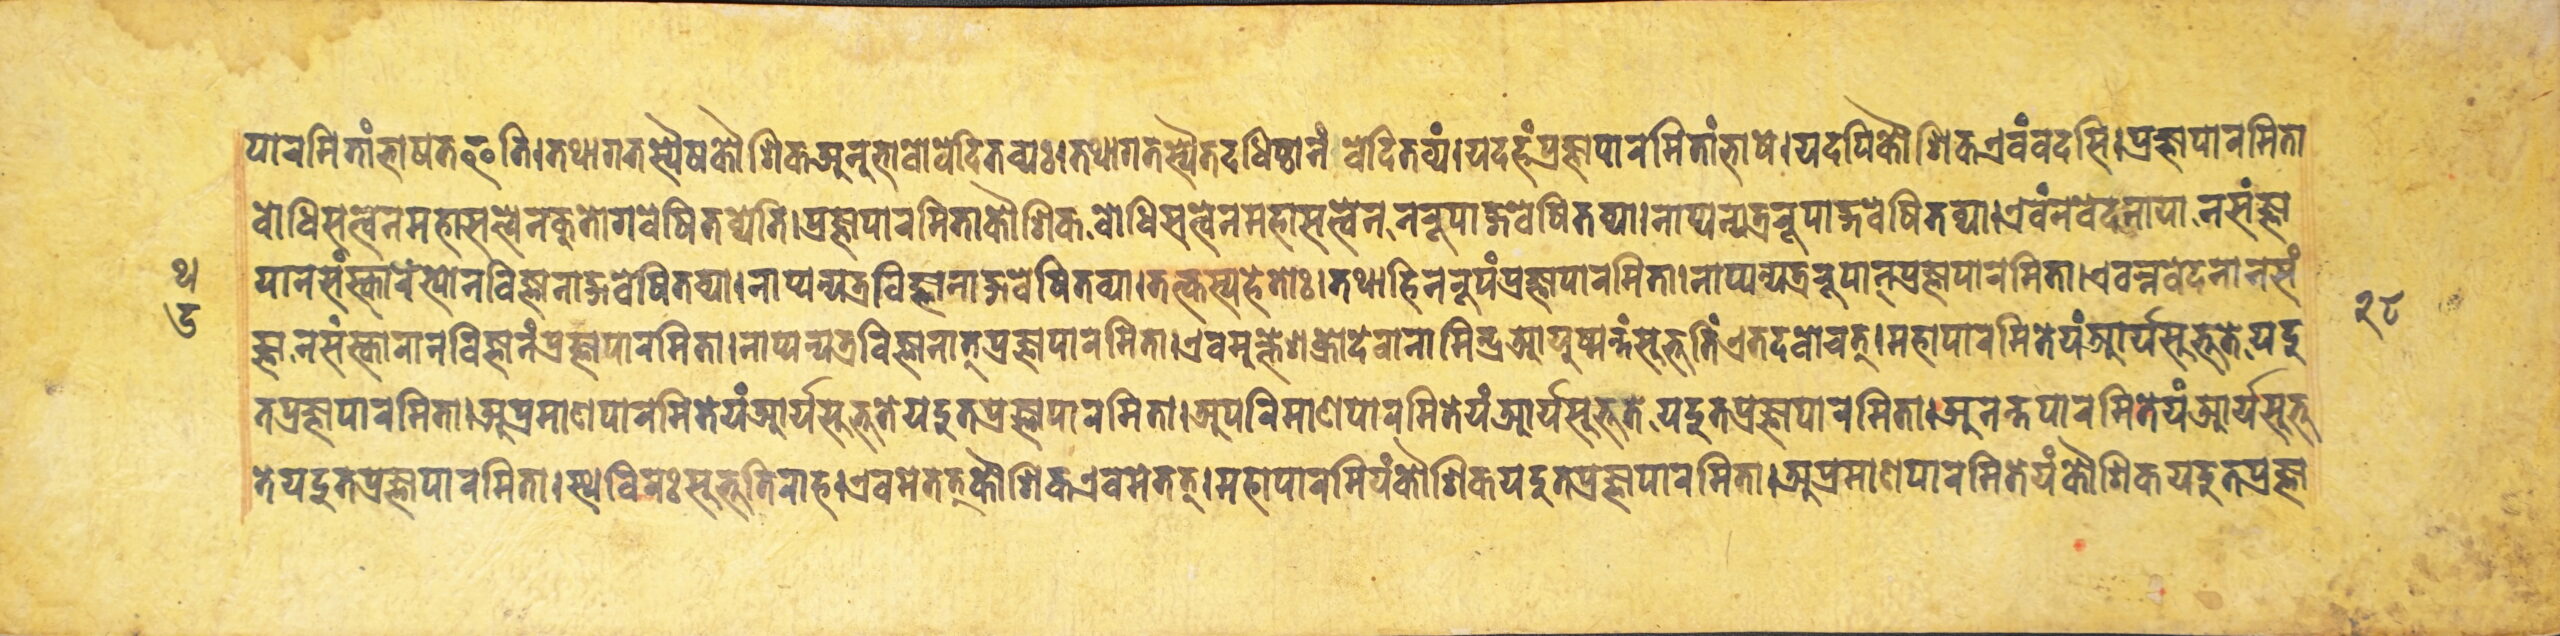 पारमितांभाषतइति।तथागतस्यैषकौशिकअनुभावोवेदितव्यः।तथागतस्यैतदधिष्ठानं वेदितव्यं।यदहंप्रज्ञापारमितांभाषे।यदपिकौशिकएवंवदसि।प्रज्ञापारमिता
बोधिसत्त्वेनमहासत्त्वेनकुतोगवेषितव्येति।प्रज्ञापारमिताकौशिक बोधिसत्त्वेनमहासत्त्वेन नरूपाद्गवेषितव्या।नाप्यन्यत्ररूपाद्गवेषितव्या।एवंनवेदनाया नसंज्ञा
यानसंस्कारेभ्योनविज्ञानाद्गवेषितव्या।नाप्यन्यत्रविज्ञानाद्गवेषितव्या।तत्कस्यहेतोः।तथाहिनरूपंप्रज्ञापारमिता।नाप्यन्यत्ररूपात्प्रज्ञापारमिता।एवन्नवेदनानसं
ज्ञा नसंस्कारानविज्ञानंप्रज्ञापारमिता।नाप्यन्यत्रविज्ञानात्प्रज्ञापारमिता।एवमुक्तेशक्रोदेवानामिन्द्रआयुष्मन्तंसुभूतिंएतदवोचत्।महापारमितेयंआर्यसुभूते यदु
तप्रज्ञापारमिता।अप्रमाणपारमितेयंआर्यसुभूतेयदुतप्रज्ञापारमिता।अपरिमाणपारमितेयंआर्यसुभूते यदुतप्रज्ञापारमिता।अनन्तपारमितेयंआर्यसुभू
तेयदुतप्रज्ञापारमिता।स्थविरःसुभूतिराह।एवमेतत्कौशिकएवमेतत्।महापारमियंकौशिकयदुतप्रज्ञापारमिता।अप्रमाणपारमितेयंकौशिकयदुतप्रज्ञा
२८